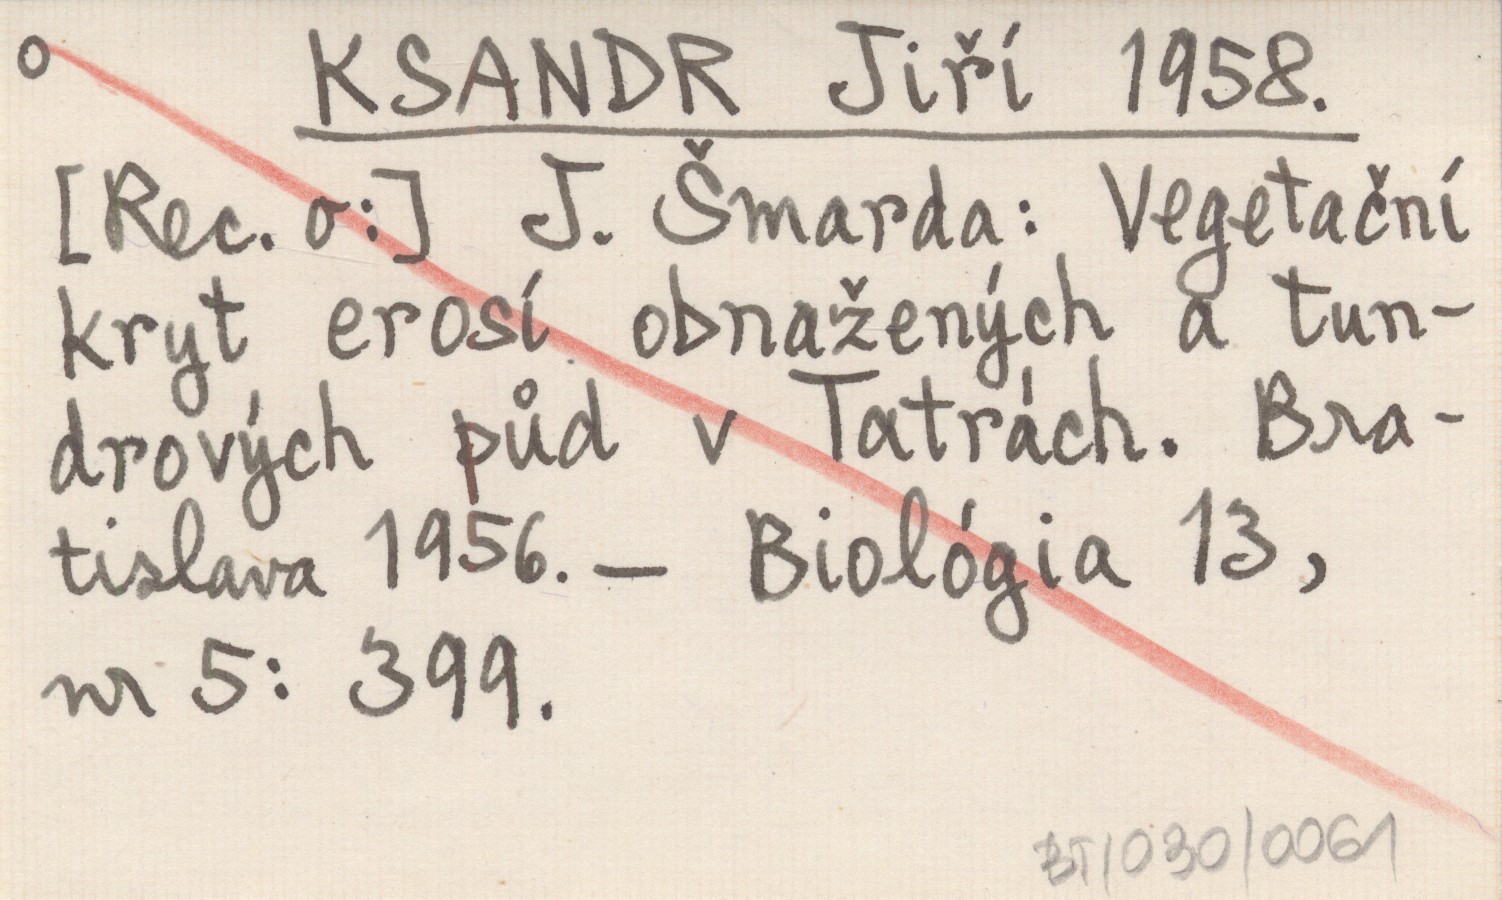 o KSANDR Jiří 1958.
[Rec. o:] J. Šmarda: Vegetační
kryt erosí obnažených a tun-
drových půd v Tatrách. Bra-
tislava 1956. — Biológia 13,
nr 5: 399.
BT/030/0061